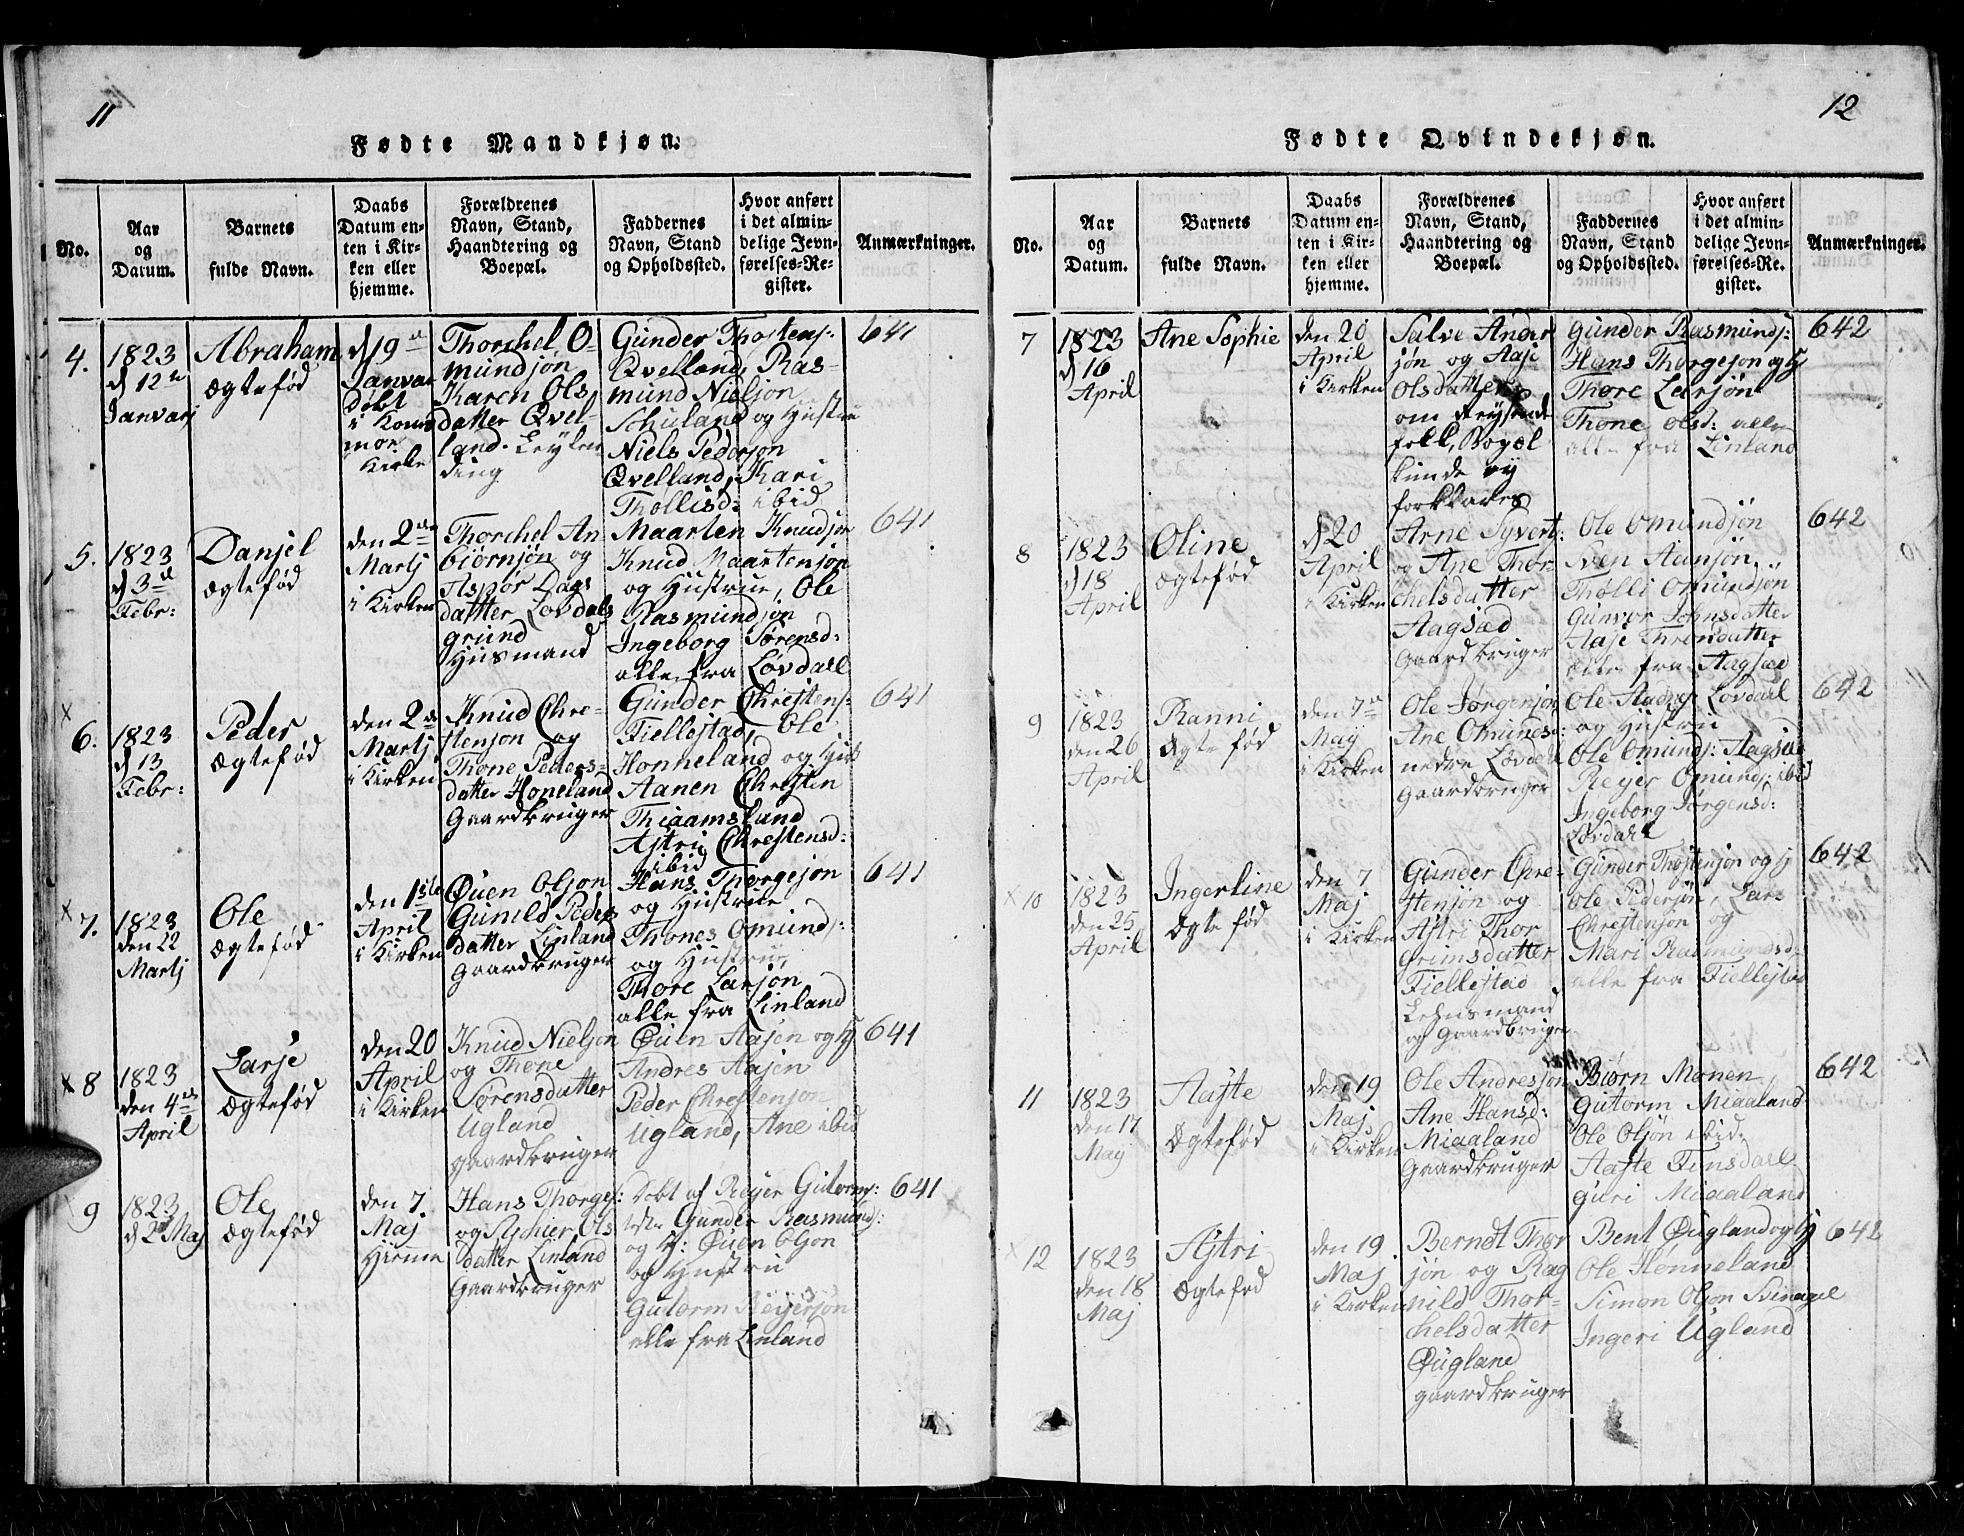 11
Fødte Mandkjøn.
No.
Aar
og
Datum.
Barnets
fulde Navn.
Daabs
Datum en-
ten i Kir-
ken eller
hjemme.
Forældrenes
Navn, Stand,
Haandtering og
Boepæl.
Faddernes
Navn, Stand
og Opholdssted.
Hvor anført
i det almin-
delige Jevn-
førelses-Re-
gister.
Anmærkninger.
4.
1823
d 12te
Janvarj
Abraham
Ægtefød
d 19de
Janvar
Døbt
i
Kirke
Thorchel O-
mundsøn
Karen Ols
datter Qvel-
land.
Gunder Thostens:
Qvelland, Ras-
mund Nielson
og Hustru
Niels Pederson
Qvelland, Kari
Thollisd: ibid
641
5.
1823
d 3de
Febr:
Danjel
Ægtefød
den 2den
Martj
i Kirken
Thorchel An
biørnsøn og
Aspør Dags
datter Løvdals
grund
Huusmand
Maarten Knudson
Knud Maartenson
og Hustrue, Ole
Rasmundson
Ingeborg Sørensd:
alle fra Løvdall
641
x
6.
1823
d 13
Febr:
Peder
Ægtefød
den 2de
Martj
i Kirken
Knud Chre-
stenson og
Thone Peders-
datter Honeland
Gaardbruger
Gunder Chrestens:
Fiellestad, Ole
Honneland og Hust
Aanen Chresten
Thiaamsland
Astri Chrestensd:
ibid
641
x 7.
1823
den 22
Martj
Ole
Ægtefød
den 1ste
April
i Kirken
Øuen Olson
Gunild Peders
datter Linland
Gaardbruger
Hans Thorgeson
og Hustrue
Thones Omunds:
og Hustrue
Thore Larson
alle fra Linland
641
x 8
1823
den 4de
April
Larse
Ægtefød
den 20
April
i Kirken
Knud Nielson
og Thone
Sørensdatter
Ugland
gaardbruger
Øuen Aasen og H
Andres Aasen
Peder Chrestenson
Ugland, Ane ibid
641
x 9
1823
d 2de Maj
Ole
Ægtefød
den 7.
Maj
Hieme
Hans Thorges:
og Ols
datter Linland
Gaardbruger
Døbt af Reyer Gutorms:
Gunder Rasmunds:
og H: Øuen Olson
og Hustru
Gutorm Reyerson
alle fra Linland
641
12
Fødte Qvindekjøn.
No.
Aar
og
Datum.
Barnets
fulde Navn.
Daabs
Datum en-
ten i Kir-
ken eller
hjemme.
Forældrenes
Navn, Stand,
Haandtering og
Boepæl.
Faddernes
Navn, Stand
og Opholdssted.
Hvor anført
i det almin-
delige Jevn-
førelses-Re-
gister.
Anmærkninger.
7
1823
d 16
April
Ane Sophie
den 20
April
i Kirken
Salve Ander
søn og Aase
Olsdatter
om Reysende
folk, Bopæl
kunde ej
forklares
Gunder Rasmunds:
Hans Thorgeson og H
Thore Larsøn
Thone Olsd: alle
alle fra Linland
642
8
1823
d 18
April
Oline
Ægtefød
d 20
April
i Kirken
Arne Syverts:
og Ane Thor
chelsdatter
Aagsæd
Gaardbruger
Ole Omundsøn
Sven Aansøn
Tholli Omundsøn
Gunvor Johnsdatter
Aase
fra Aagsæd
642
9
1823
den 26
April
Ranni
Ægte fød
den 7de
May
i Kirken
Ole Jørgensøn
Ane Omunds:
nedre Løvdal
Gaardbruger
Ole Løvdall
og Hustru
Ole Omunds: Aagsæd
Reyer Omunds: ibid
Ingeborg Jørgensd:
Løvdall
642
x 10
1823
den 25
April
Ingerline
Ægte fød
den 7
Maj
i Kirken
Gunder Chre-
stensøn og
Astri Thor
grimsdatter
Fiellestad
Lehnsmand
og Gaardbruger
Gunder Thostensøn og H
Ole Pedersøn, Lars
Chrestensøn og
Mari Rasmundsd:
alle fra Fiellestad
642
11
1823
den 17
May
Aaste
Ægtefød
den 19
Maj
i Kirken
Ole Andreson
Ane Hansd:
Miaaland
Gaardbruger
Biørn Monen
Gutorm Miaaland
Ole Olsøn ibid.
Aaste Finsdall
Guri Miaaland
642
x 12
1823
den 18
Maj
Astri
Ægtefød
den 19
Maj
i Kirken
Berndt Thor
søn og Rag
nild Thor-
chelsdatter
Øugland
gaardbruger
Bent Øugland og H
Ole Hønneland
Simon Olson
Ingeri Ugland
642